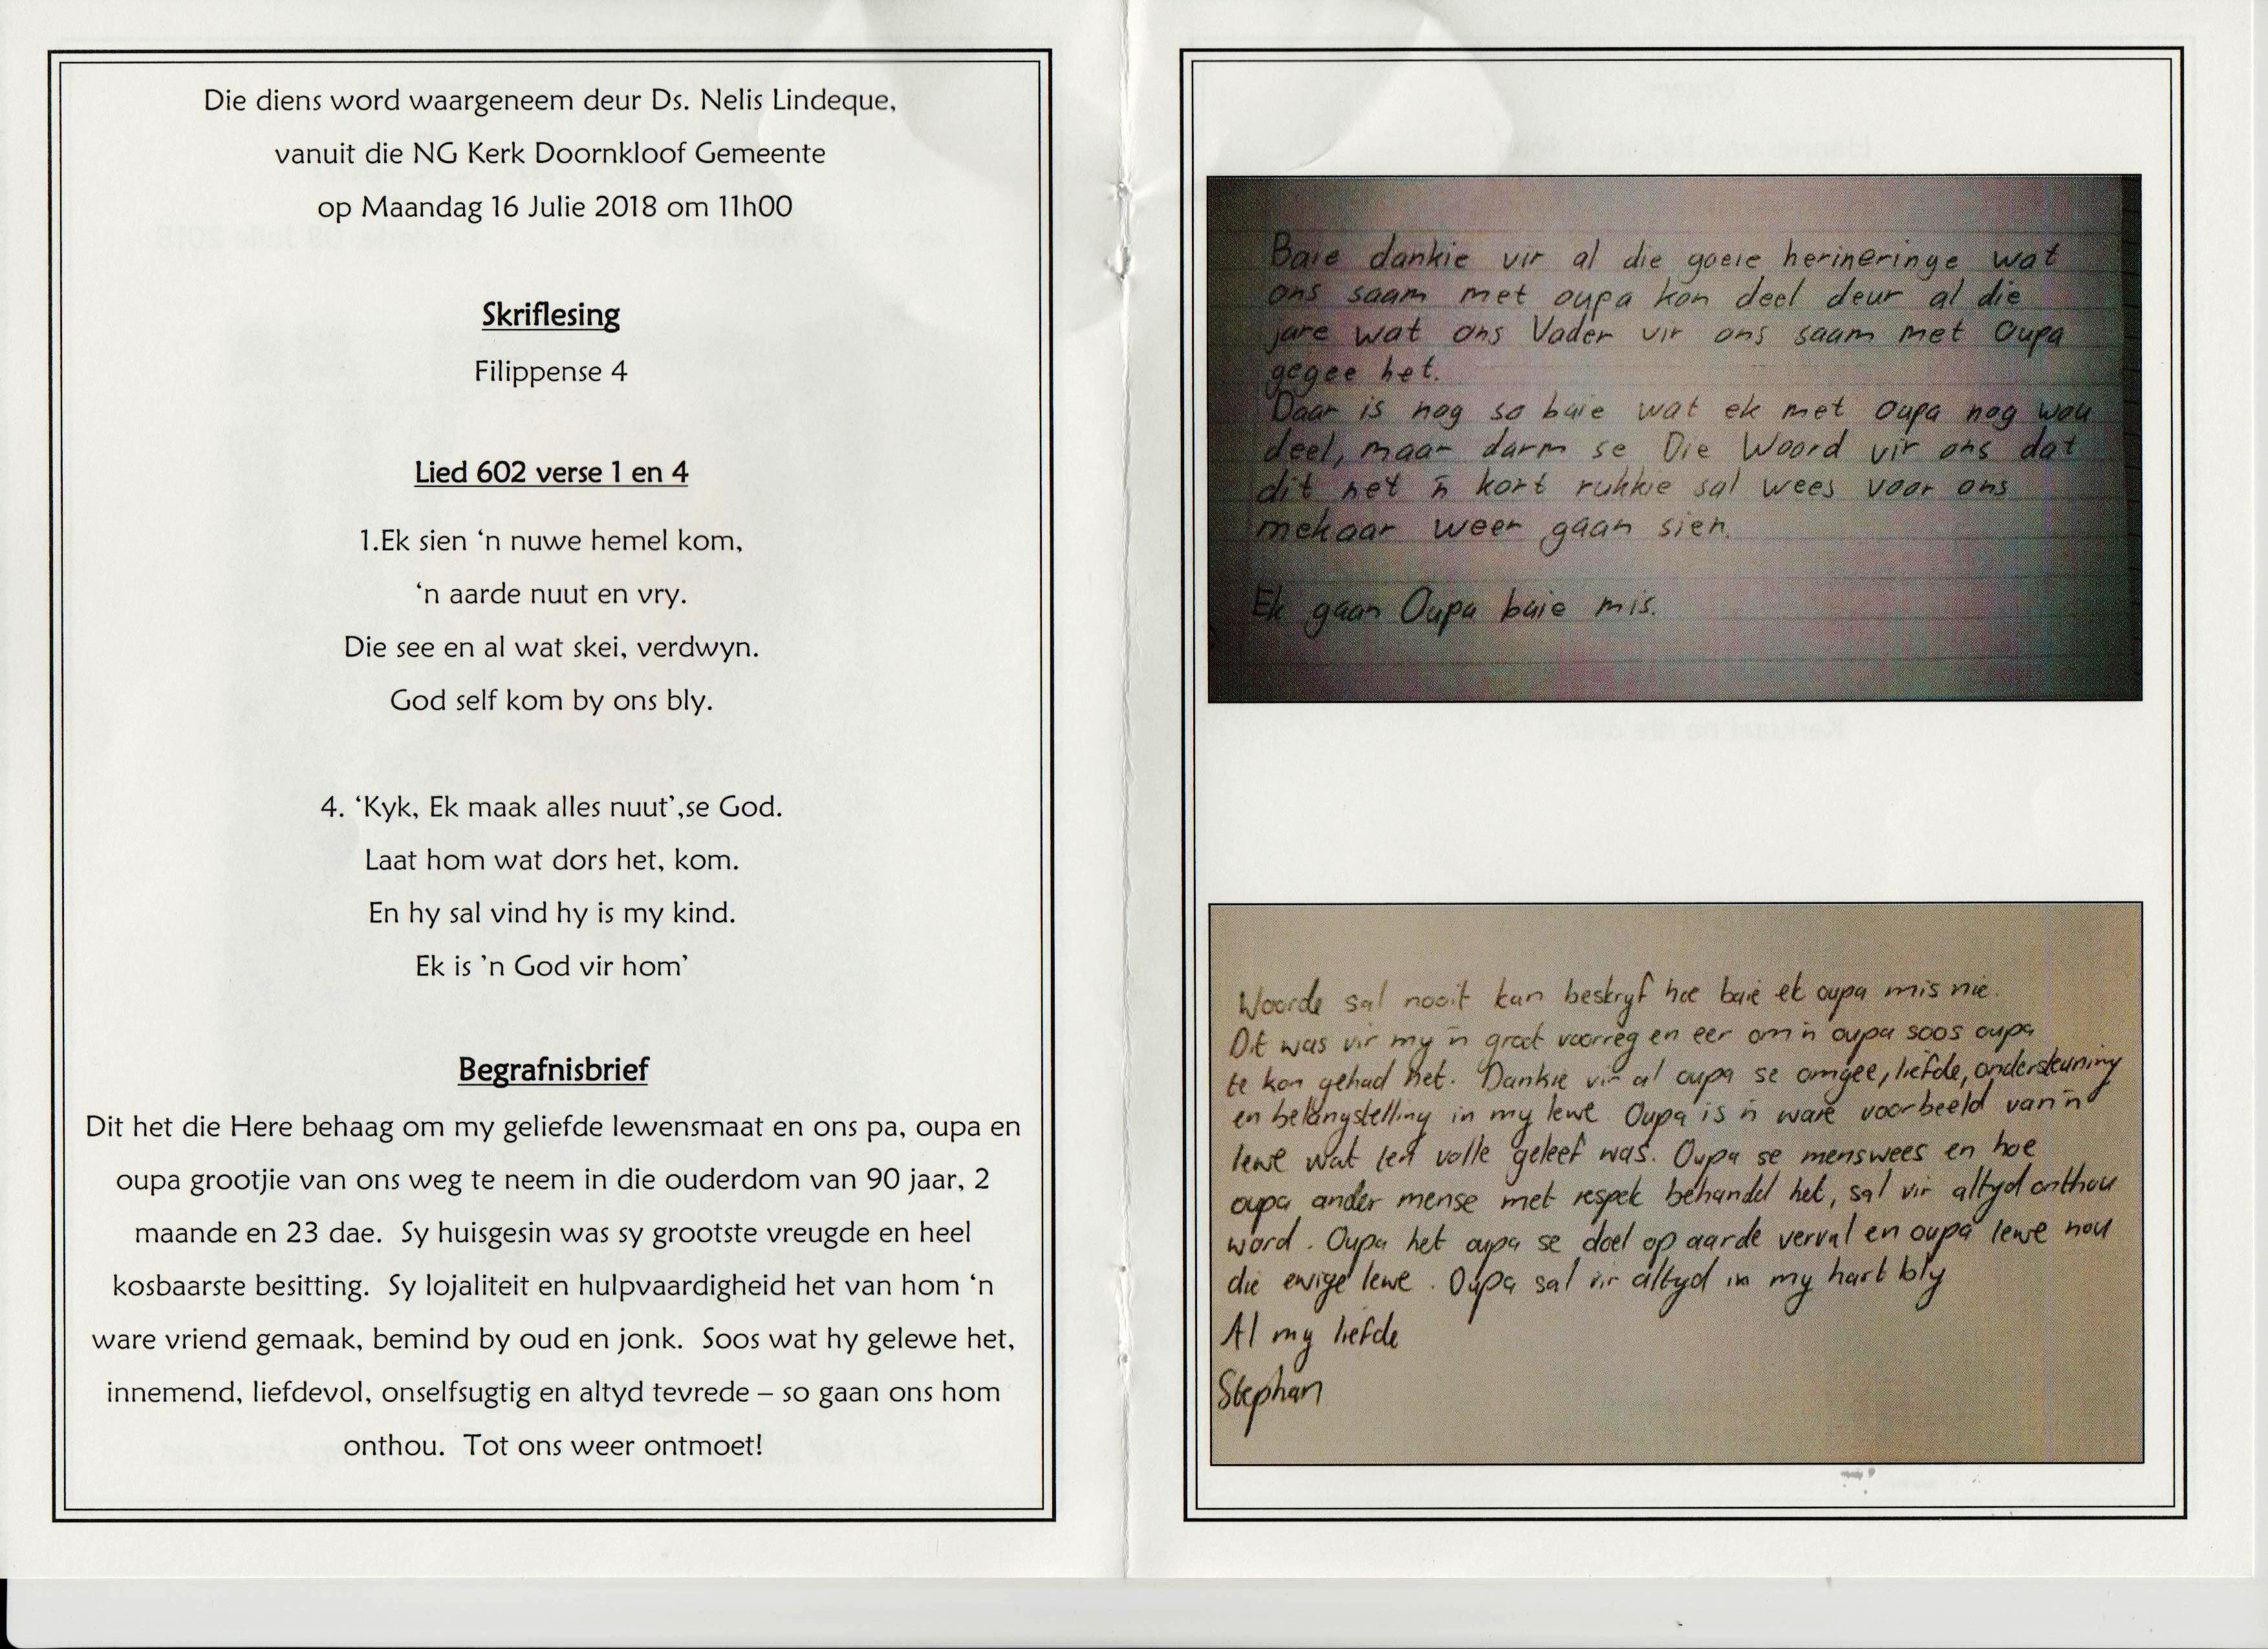 Die diens word waargeneem deur Ds. Nelis Lindeque,
vanuit die NG Kerk Doornkloof Gemeente
op Maandag 16 Julie 2018 om 11h00
Skriflesing
Filippense 4
Lied 602 verse 1 en 4
1.Ek sien ‘n nuwe hemel kom,
‘n aarde nuut en vry.
Die see en al wat skei, verdwyn.
God self kom by ons bly.
4. ‘Kyk, Ek maak alles nuut’,se God.
Laat hom wat dors het, kom.
En hy sal vind hy is my kind.
Ek is ’n God vir hom’
Begrafnisbrief
Dit het die Here behaag om my geliefde lewensmaat en ons pa, oupa en
oupa grootjie van ons weg te neem in die ouderdom van 90 jaar, 2
maande en 23 dae. Sy huisgesin was sy grootste vreugde en heel
kosbaarste besitting. Sy lojaliteit en hulpvaardigheid het van hom ‘n
ware vriend gemaak, bemind by oud en jonk. Soos wat hy gelewe het,
innemend, liefdevol, onselfsugtig en altyd tevrede – so gaan ons hom
onthou. Tot ons weer ontmoet!
Baie dankie vir al die goeie herineringe wat
ons saam met oupa kon deel deur al die
jare wat ons Vader vir ons saam met Oupa
gegee het.
Daar is nog so baie wat ek met Oupa nog wou
deel, maar darm se Die Woord vir ons dat
dit net ñ kort rukkie sal wees voor ons
mekaar weer gaan sien.
Ek gaan Oupa baie mis.
Woorde sal nooit kan beskryf hoe baie ek oupa mis nie.
Dit was vir my ñ groot voorreg en eer om ñ oupa soos oupa
te kon gehad het. Dankie vir al oupa se omgee, liefde, ondersteuning
en belangstelling in my lewe. Oupa is ñ ware voorbeeld van ñ
lewe wat ten volle geleef was. Oupa se menswees en hoe
oupa ander mense met respek behandel het, sal vir altyd onthou
word. Oupa het oupa se doel op aarde vervul en oupa lewe nou
die ewige lewe. Oupa sal vir altyd in my hart bly
Al my liefde
Stephan